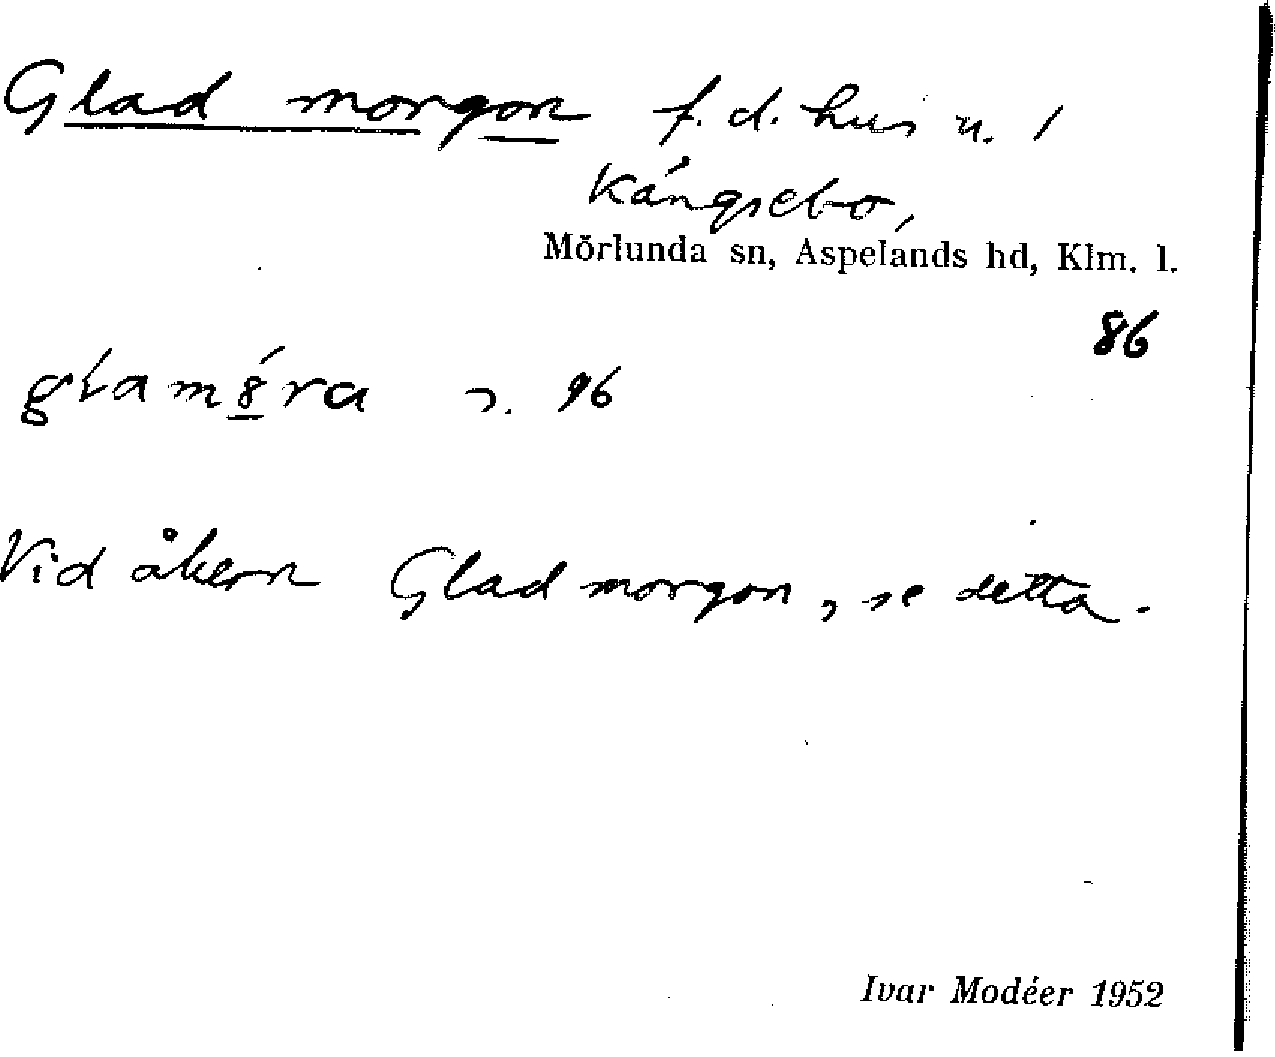 Glad morgon f. d. hus u. 1
Kångsebo,
Mörlunda sn, Aspelands hd, Klm. l.
86
96
Vid åkern Glad morgon, se detta.
Ivar Modéer 1952